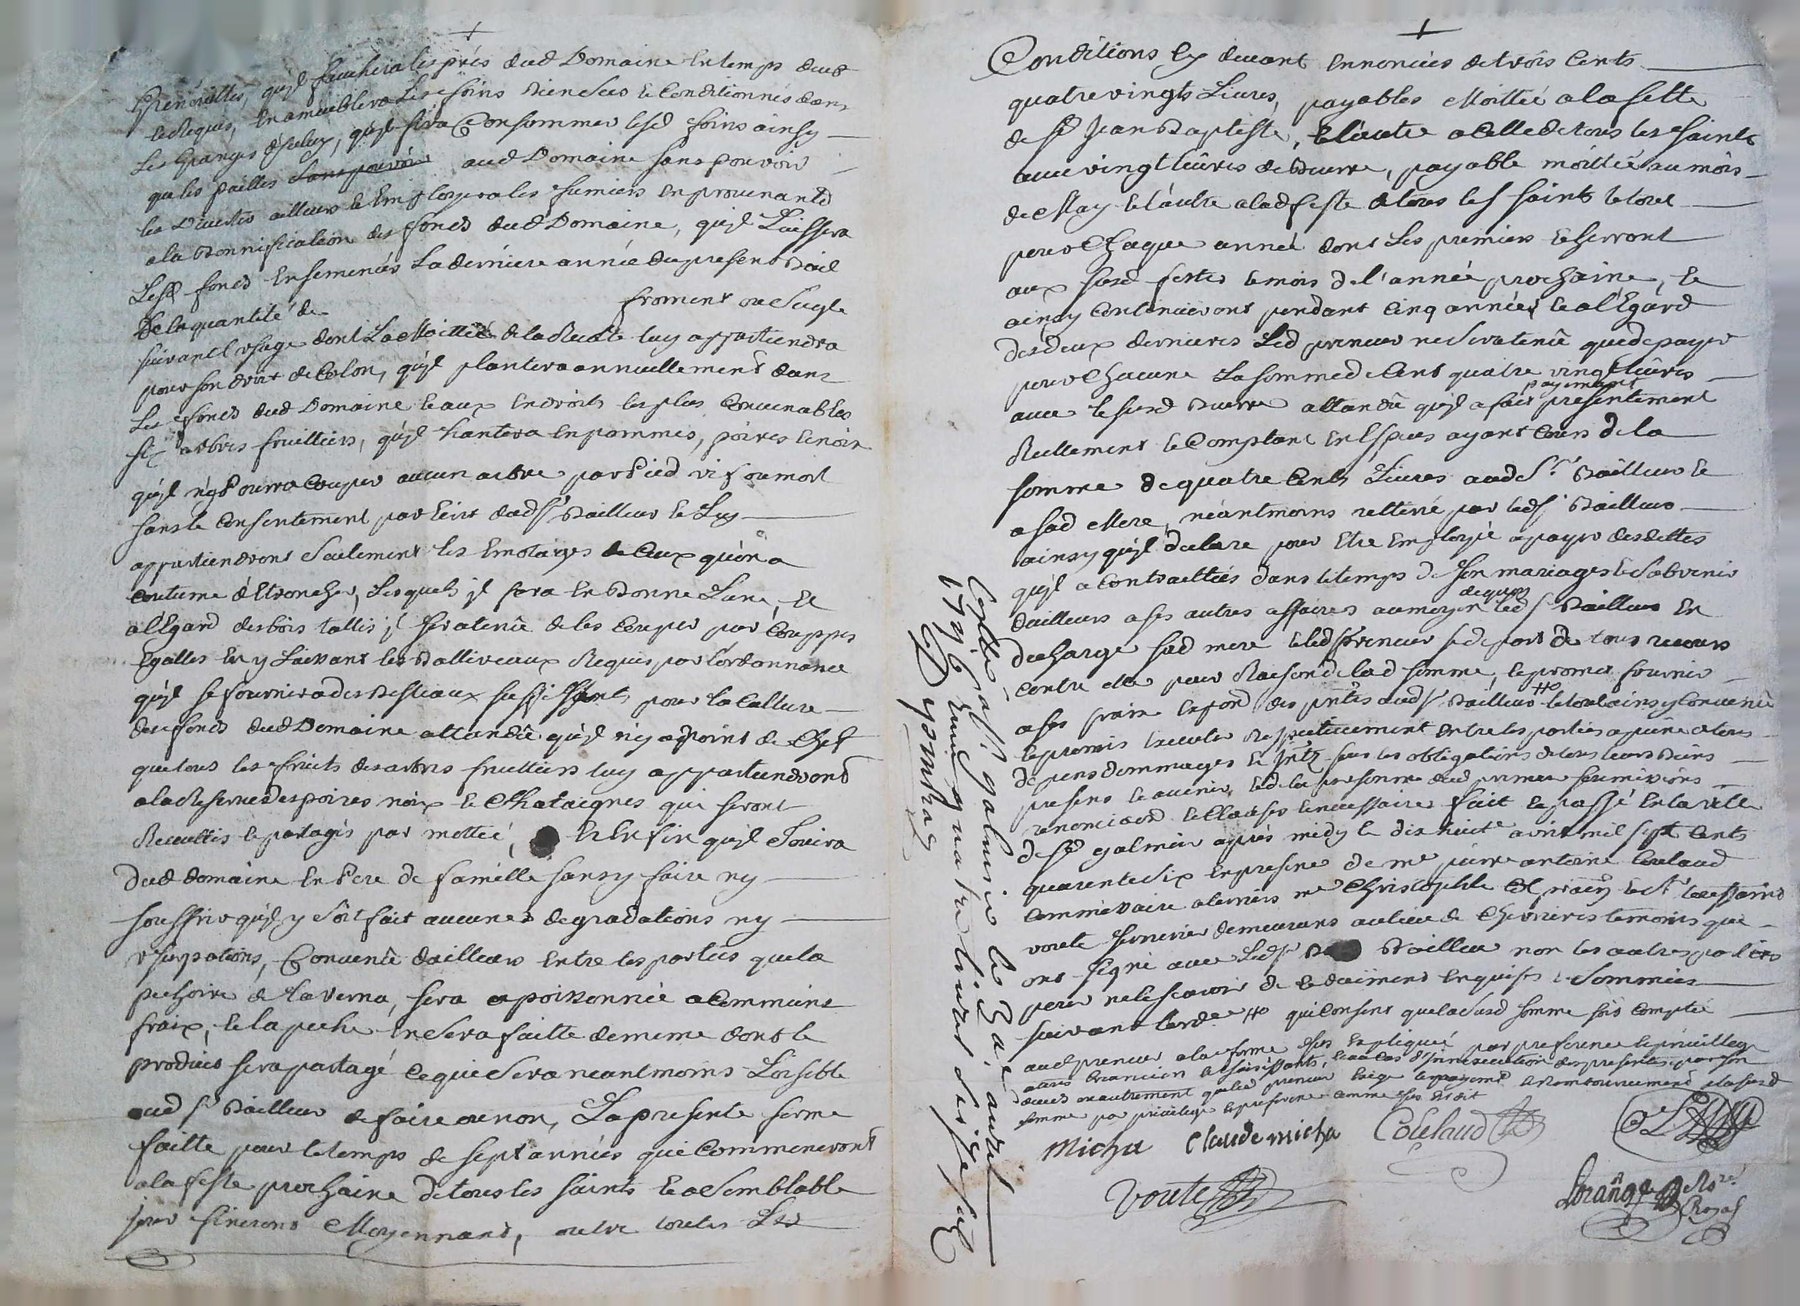 qu'jl fauchera les prés dud Domaine en temps dud
Requis, en ameublera Les foins bien secs et Conditionnés dans
Les Granges d'jceluy, qu'jl fera Consommer lesd foins ainsy
que les pailles sans pouvoir aud Domaine sans pouvoir
les Divertir ailleurs et Employera les fumiers en provenants
a la Bonnification des fonds dud Domaine, qu'jl Laissera
Lesd fonds Ensemencés La derniere année du present Bail
De la quantité de froment ou seigle
suivant l'usage dont La Moittié de la Recolte luy appartiendra
pour son droit de Colon, qu'jl plantera annuellement dans
Les fonds dud Domaine et aux Endroits les plus Convenables
six arbres fruittiers, qu'jl hantera en pommes, poires et noix
qu'jl n'y Pourra Couper aucun arbre par Pied vif ou mort
sans le Consentement par Ecrit dud sr Bailleur et Luy
appartiendront seulement les Emolages de Ceux qu'on a
Coutume d'Ebrancher, Lesquels jl fera En Bonne Lune, et
a l'Egard des bois tallis jl sera tenû de les Couper par Couppes
Egalles En y Laissant les Balliveaux Requis par l'ordonnance
qu'jl se fournira des Bestiaux suffisants pour la Culture
des fonds dud Domaine attendû qu'jl n'y a point de Chef
que tous les fruits des arbres fruittiers luy appartiendront
a la Reserve des poires noix et Chataignes qui seront
Recueillis et partagés par moitié, Et En fin qu'jl Jouira
Dud domaine En Pere de famille sans y faire ny
souffrir qu'jl y soit fait aucunes degradations ny
usurpations, Convenû d'ailleurs Entre les parties que la
pechoire de la verna, sera apoissonnée a Communs
fraix, et la peche En sera faitte de meme dont le
produit sera partagé ce qui sera neantmoins Loisible
aud sr Bailleur de faire ou non, La presente ferme
faitte pour le temps de sept années qui Commenceront
a la feste prochaine de tous les saints et a semblable
jour finiront Moyennant, outre toutes Les
Conditions Cy devant Ennoncées de trois Cents
quatre vingts Livres, payables Moittié a la feste
de st Jean Baptiste, et l'autre a Celle de tous les Saints
avec vingt livres de Beurre, payable moittié au mois
de May et l'autre a lad feste de tous les saints le tout
pour Chaque année dont Les premiers Echerront
aux susd festes et mois de l'année prochaine, et
ainsy Continueront pendant Cinq années et a l'Egard
des deux dernieres Led preneur ne sera tenû que de payer
pour Chacune La somme de Cent quatre vingt livres
avec le susd Beurre attandû qu'jl a fait payement presentement
Reellement et Comptant En Espces ayant Cours de la
somme de quatre Cents Livres aud Sr Bailleur et
a sad Mere, néantmoins rettiré par led sr Bailleur
ainsy qu'jl declare pour Etre Employée a payer des dettes
qu'jl a Contractées dans le temps de son mariage et subvenir
d'ailleurs a ses autres affaires au moyen de quoy led sr Bailleur En
decharge sad mere et led preneur se depart de tous recours
Contre elle pour Raison de lad somme, et promet fournir
a ses fraix Expedon des pntes aud sr Bailleur # le tout ainsy Convenû
et promis Executer Respectivement Entre les parties a peine de tous
depens dommages et Jnts sous les obligations de tous leurs biens
presens et avenir, et de la personne dud preneur soumissions
renonciaons et Clauses necessaires fait et passé En la ville
de st galmier après midy le dix huict avril mil sept Cents
quarente six En presence de me pierre antoine Coulaud
Commissaire a terriers me Christophle et le Sr
voute demeurans au lieu de Chevrieres temoins qui
ont signé avec Led sr Bailleur non les autres parties
pour ne le sçavoir de ce düement Enquises et Sommées
suivant l'ordce # qui Consent que la susd somme soit Comptée
aud preneur a la forme sus Expliquée par preference et privillege
a tous Creanciers et saisissants,
somme par privilege et preferance comme sus Est dit
Micha Claude micha Coulaud
voute Lorange Notre Royal
Collé à st galmier le 23 avril
1746 Reçu quatre livres seize sols
Depommerol